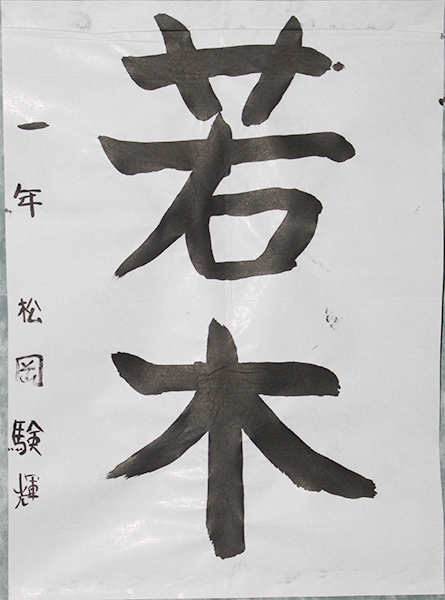 若木
一年 松岡験輝